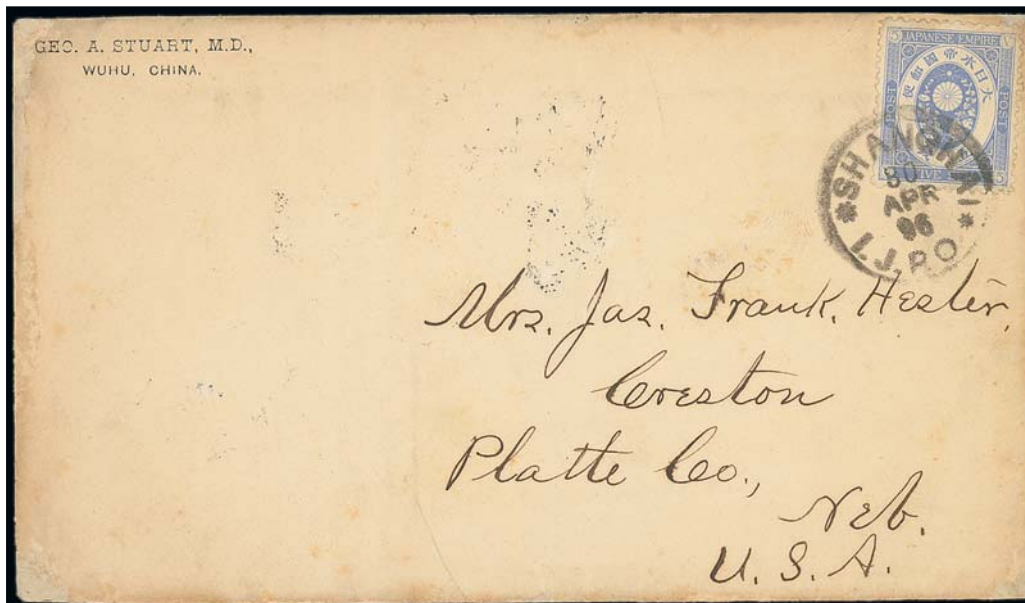 GEO. A. STUART, M.D.,
WUHU, CHINA.
JAPANESE EMPIRE
大日本帝國郵便
POST
POST
5
5
SHANGHAI
30
APR
96
I.J.P.O
Mrs. Jas. Frank. Hester,
Creston
Platte Co.,
Neb.
U.S.A.